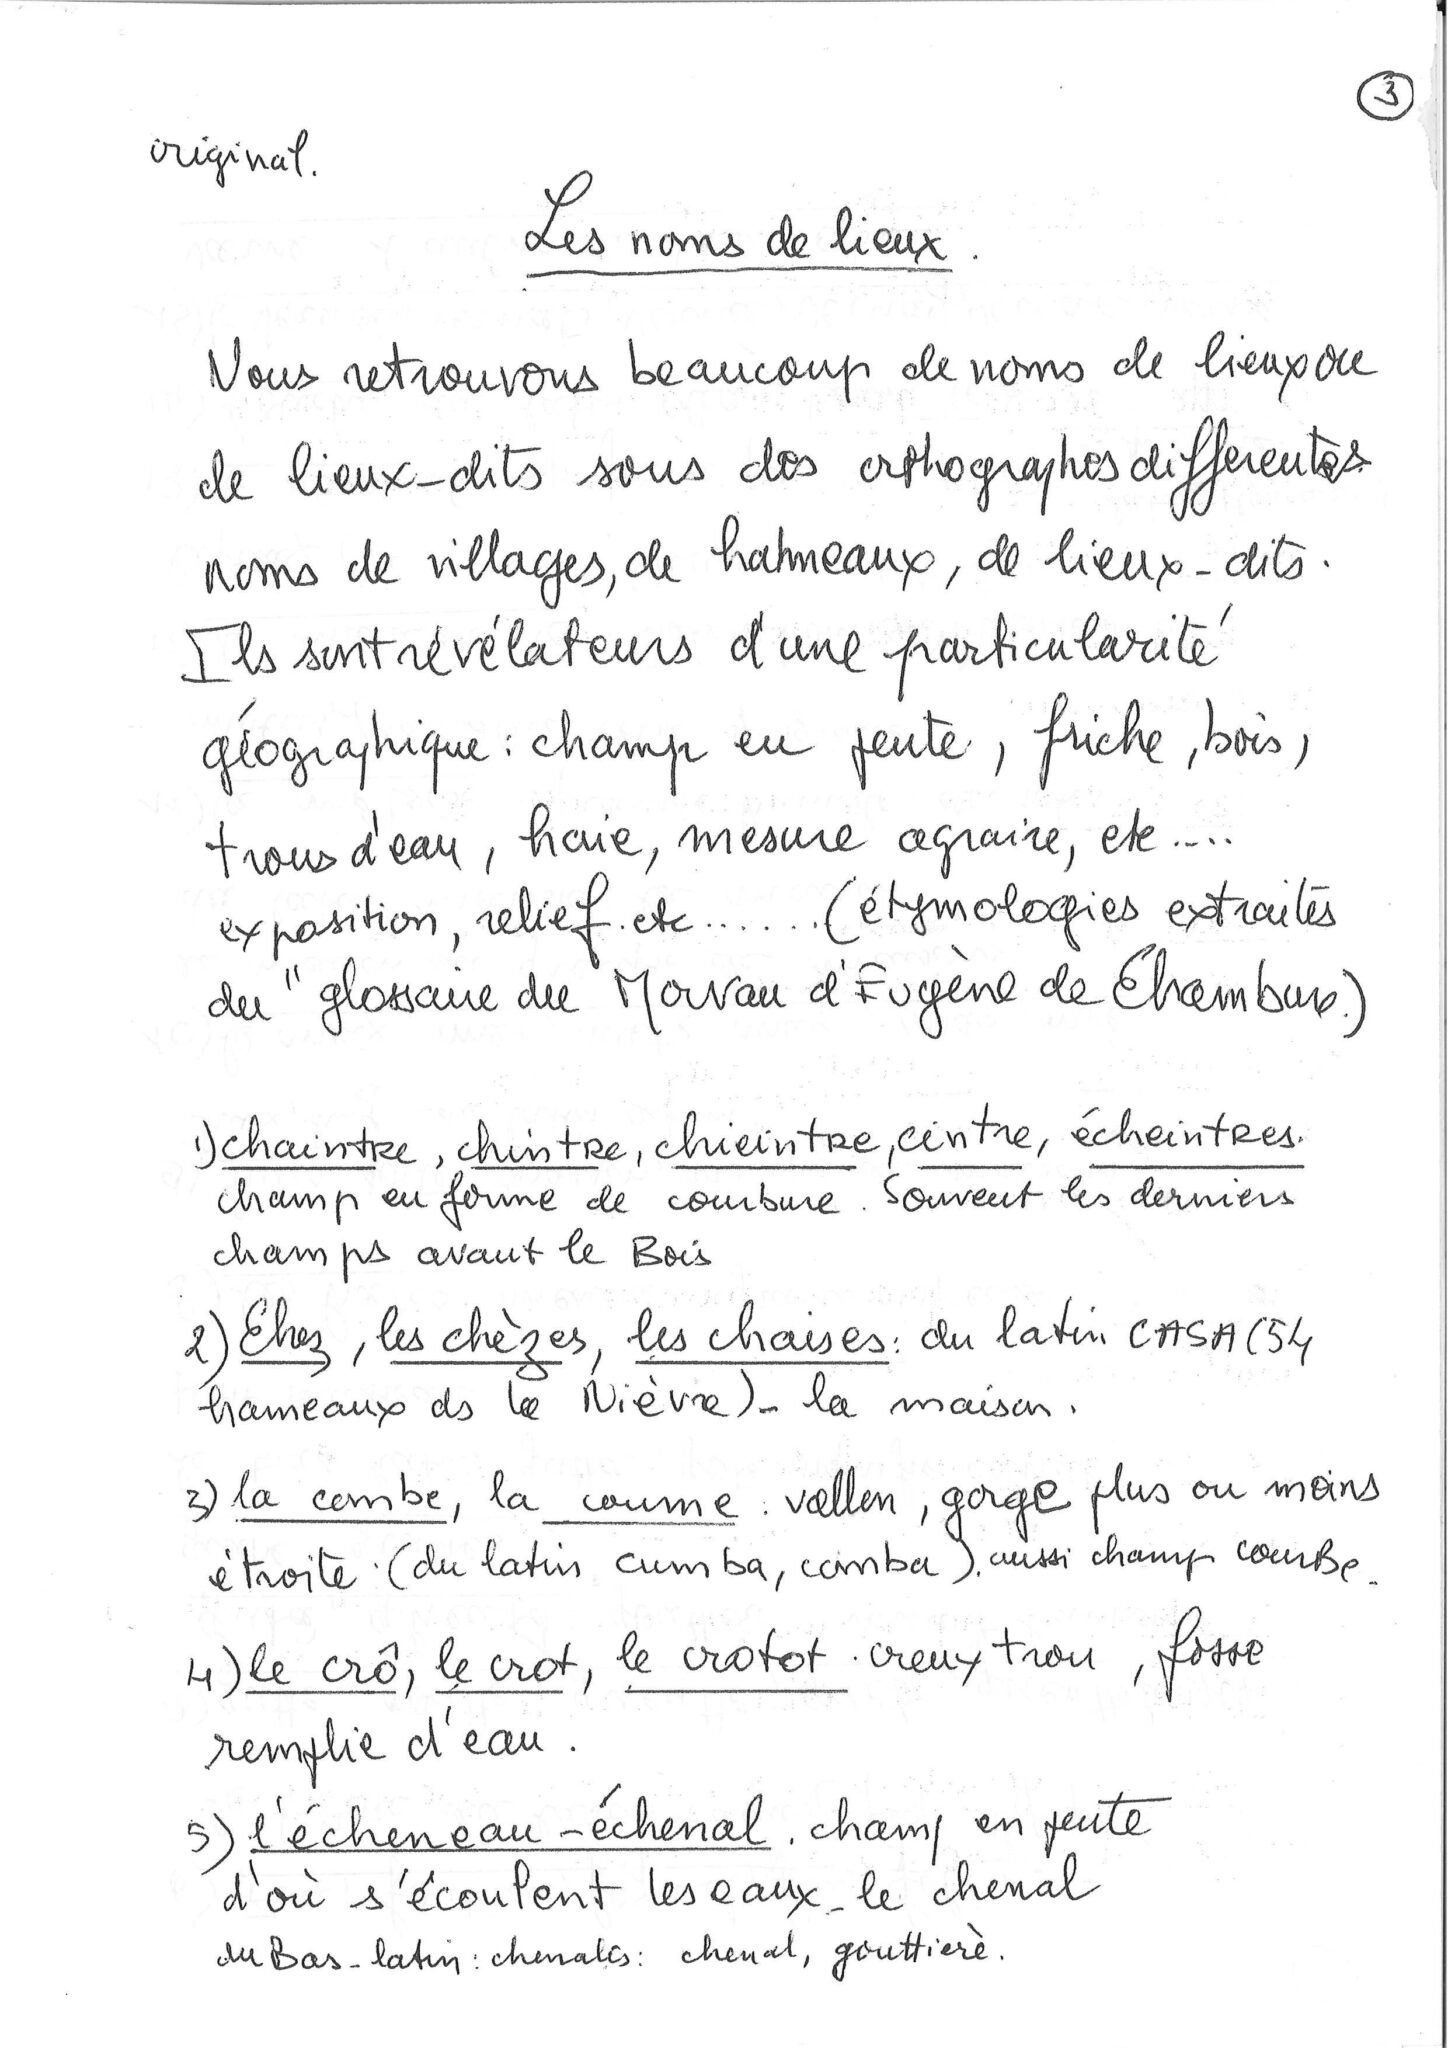 3
original.
Les noms de lieux.
Nous retrouvons beaucoup de noms de lieux ou
de lieux-dits sous des orthographes differentes
noms de villages, de hahmeaux, de lieux-dits.
Ils sont révélateurs d'une particularité
géographique : champ en pente, friche, bois,
trous d'eau, haie, mesure agraire, etc....
exposition, relief. etc....... (étymologies extraites
du "glossaire du Morvan d'Eugène de Chambure.)
1) chaintre, chintre, chieintre, cintre, écheintres.
champ en forme de courbure. Souvent les derniers
champs avant le Bois
2) Chez, les chèzes, les chaises : du latin CASA (54
hameaux ds la Nièvre)- la maison.
3) la combe, la coume. vallon, gorge plus ou moins
étroite. (du latin cumba, comba). aussi champ courBe.
4) le crô, le crot, le crotot. creux trou, fosse
remplie d'eau.
5) l'écheneau - échenal. champ en pente
d'où s'écoulent les eaux - le chenal
du Bas-latin : chenalis : chenal, gouttière.